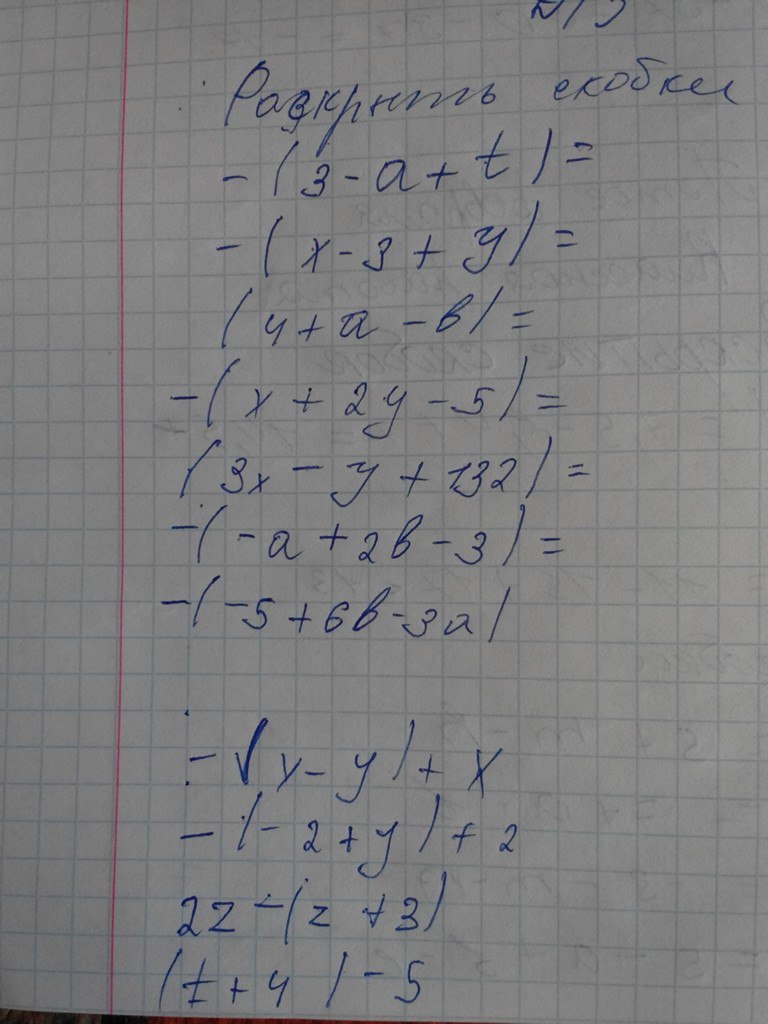 Д/З
Раскрыть скобки
-(3-a+t)=
-(x-3+y)=
(4+a-b)=
-(x+2y-5)=
(3x-y+132)=
-(-a+2b-3)=
-(-5+6b-3a)
-(x-y)+x
-(-2+y)+2
2z-(z+3)
(t+4)-5